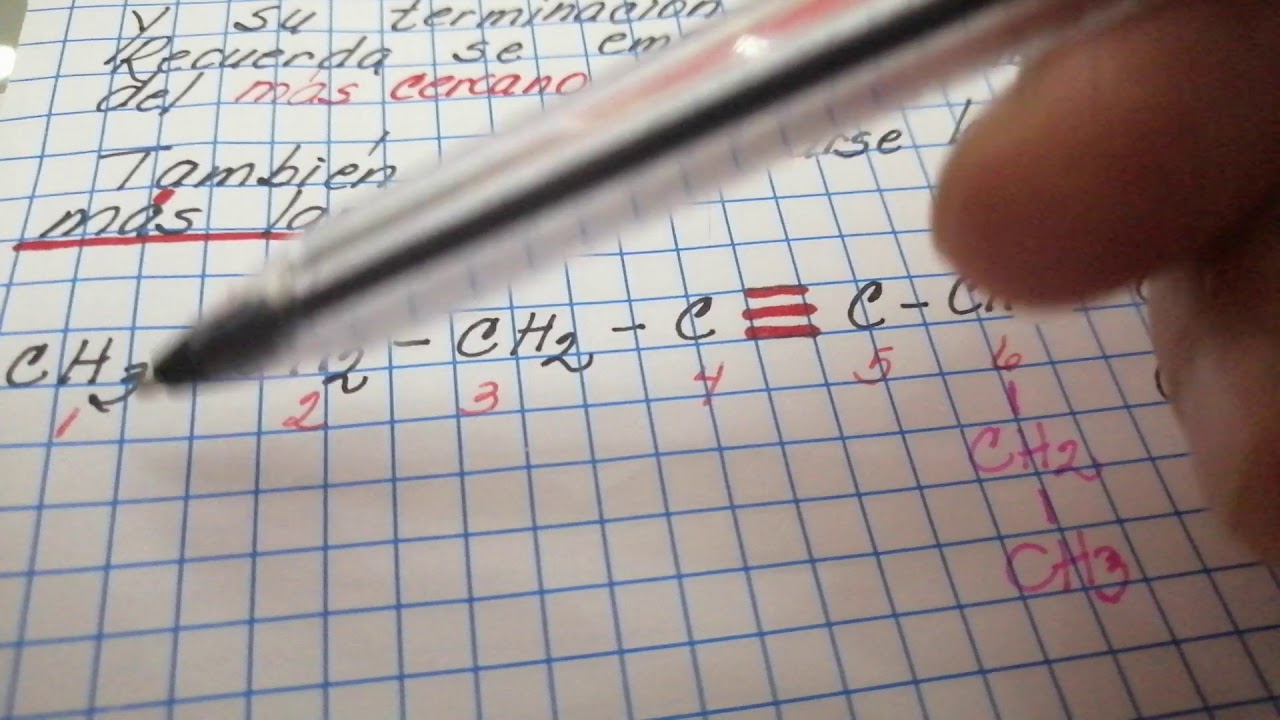 y su terminación
Recuerda se em
del más cercano
También
más
CH3 - CH2 - C ≡ C - C
1 2 3 4 5 6
CH2
CH3